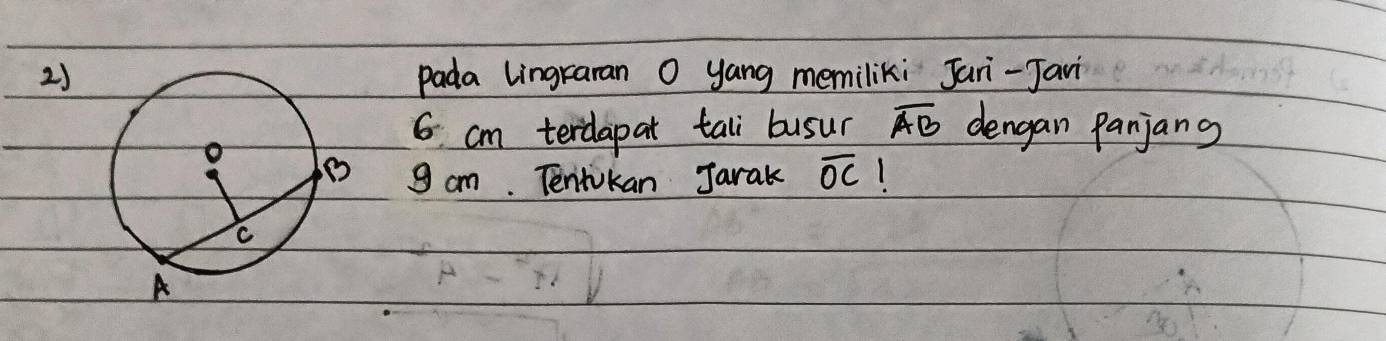 2) pada lingkaran O yang memiliki Jari-Jari
6 cm terdapat tali busur AB dengan panjang
9 cm. Tentukan Jarak OC!
O
B
C
A